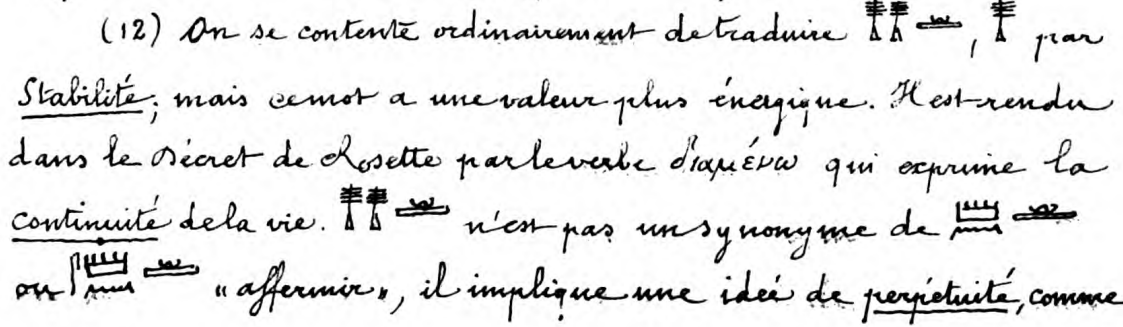 (12) On se contente ordinairement de traduire 𓊽𓊽𓏛, 𓊽 par
Stabilité; mais ce mot a une valeur plus énergique. Il est rendu
dans le Décret de Rosette par le verbe διαμένω qui exprime la
continuité de la vie. 𓊽𓊽𓏛 n'est pas un synonyme de 𓏠𓈖𓏛
ou 𓋴𓏠𓈖𓏛 "affermir", il implique une idée de perpétuité, comme